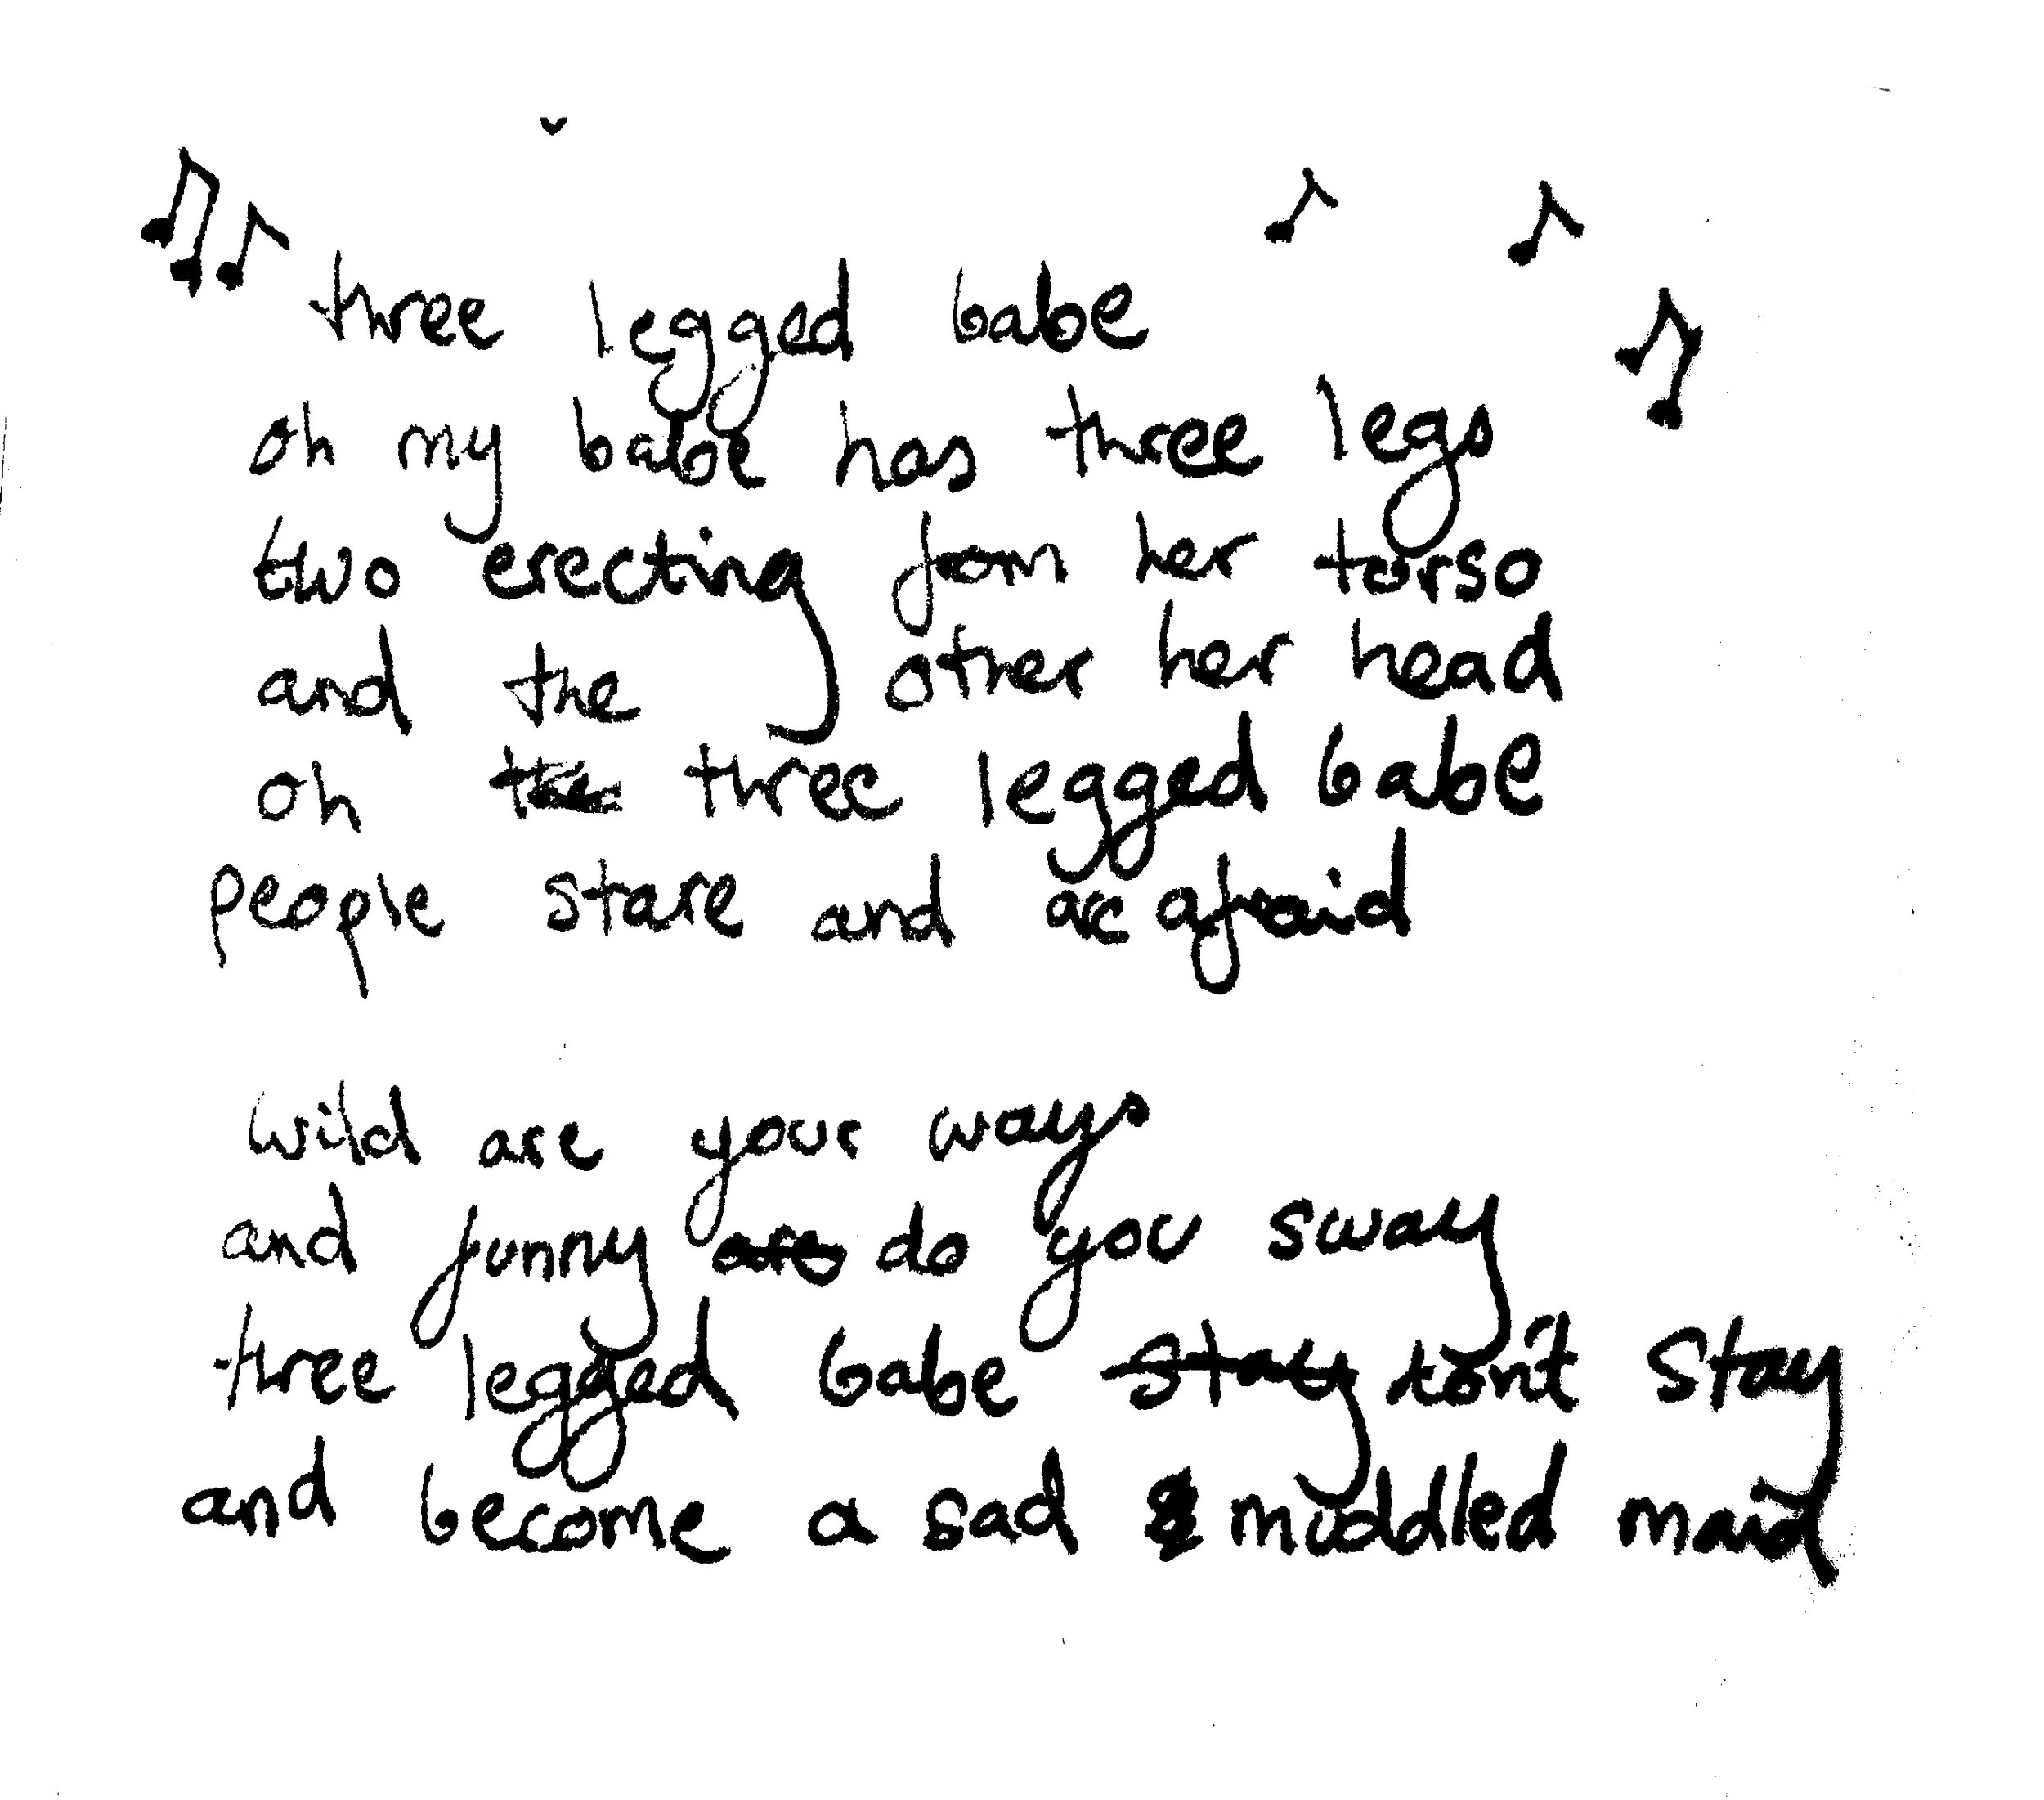 three legged babe
oh my babe has three legs
two erecting from her torso
and the other her head
oh three legged babe
people stare and are afraid
wild are your ways
and funny do you sway
three legged babe stay don't stay
and become a sad muddled maid